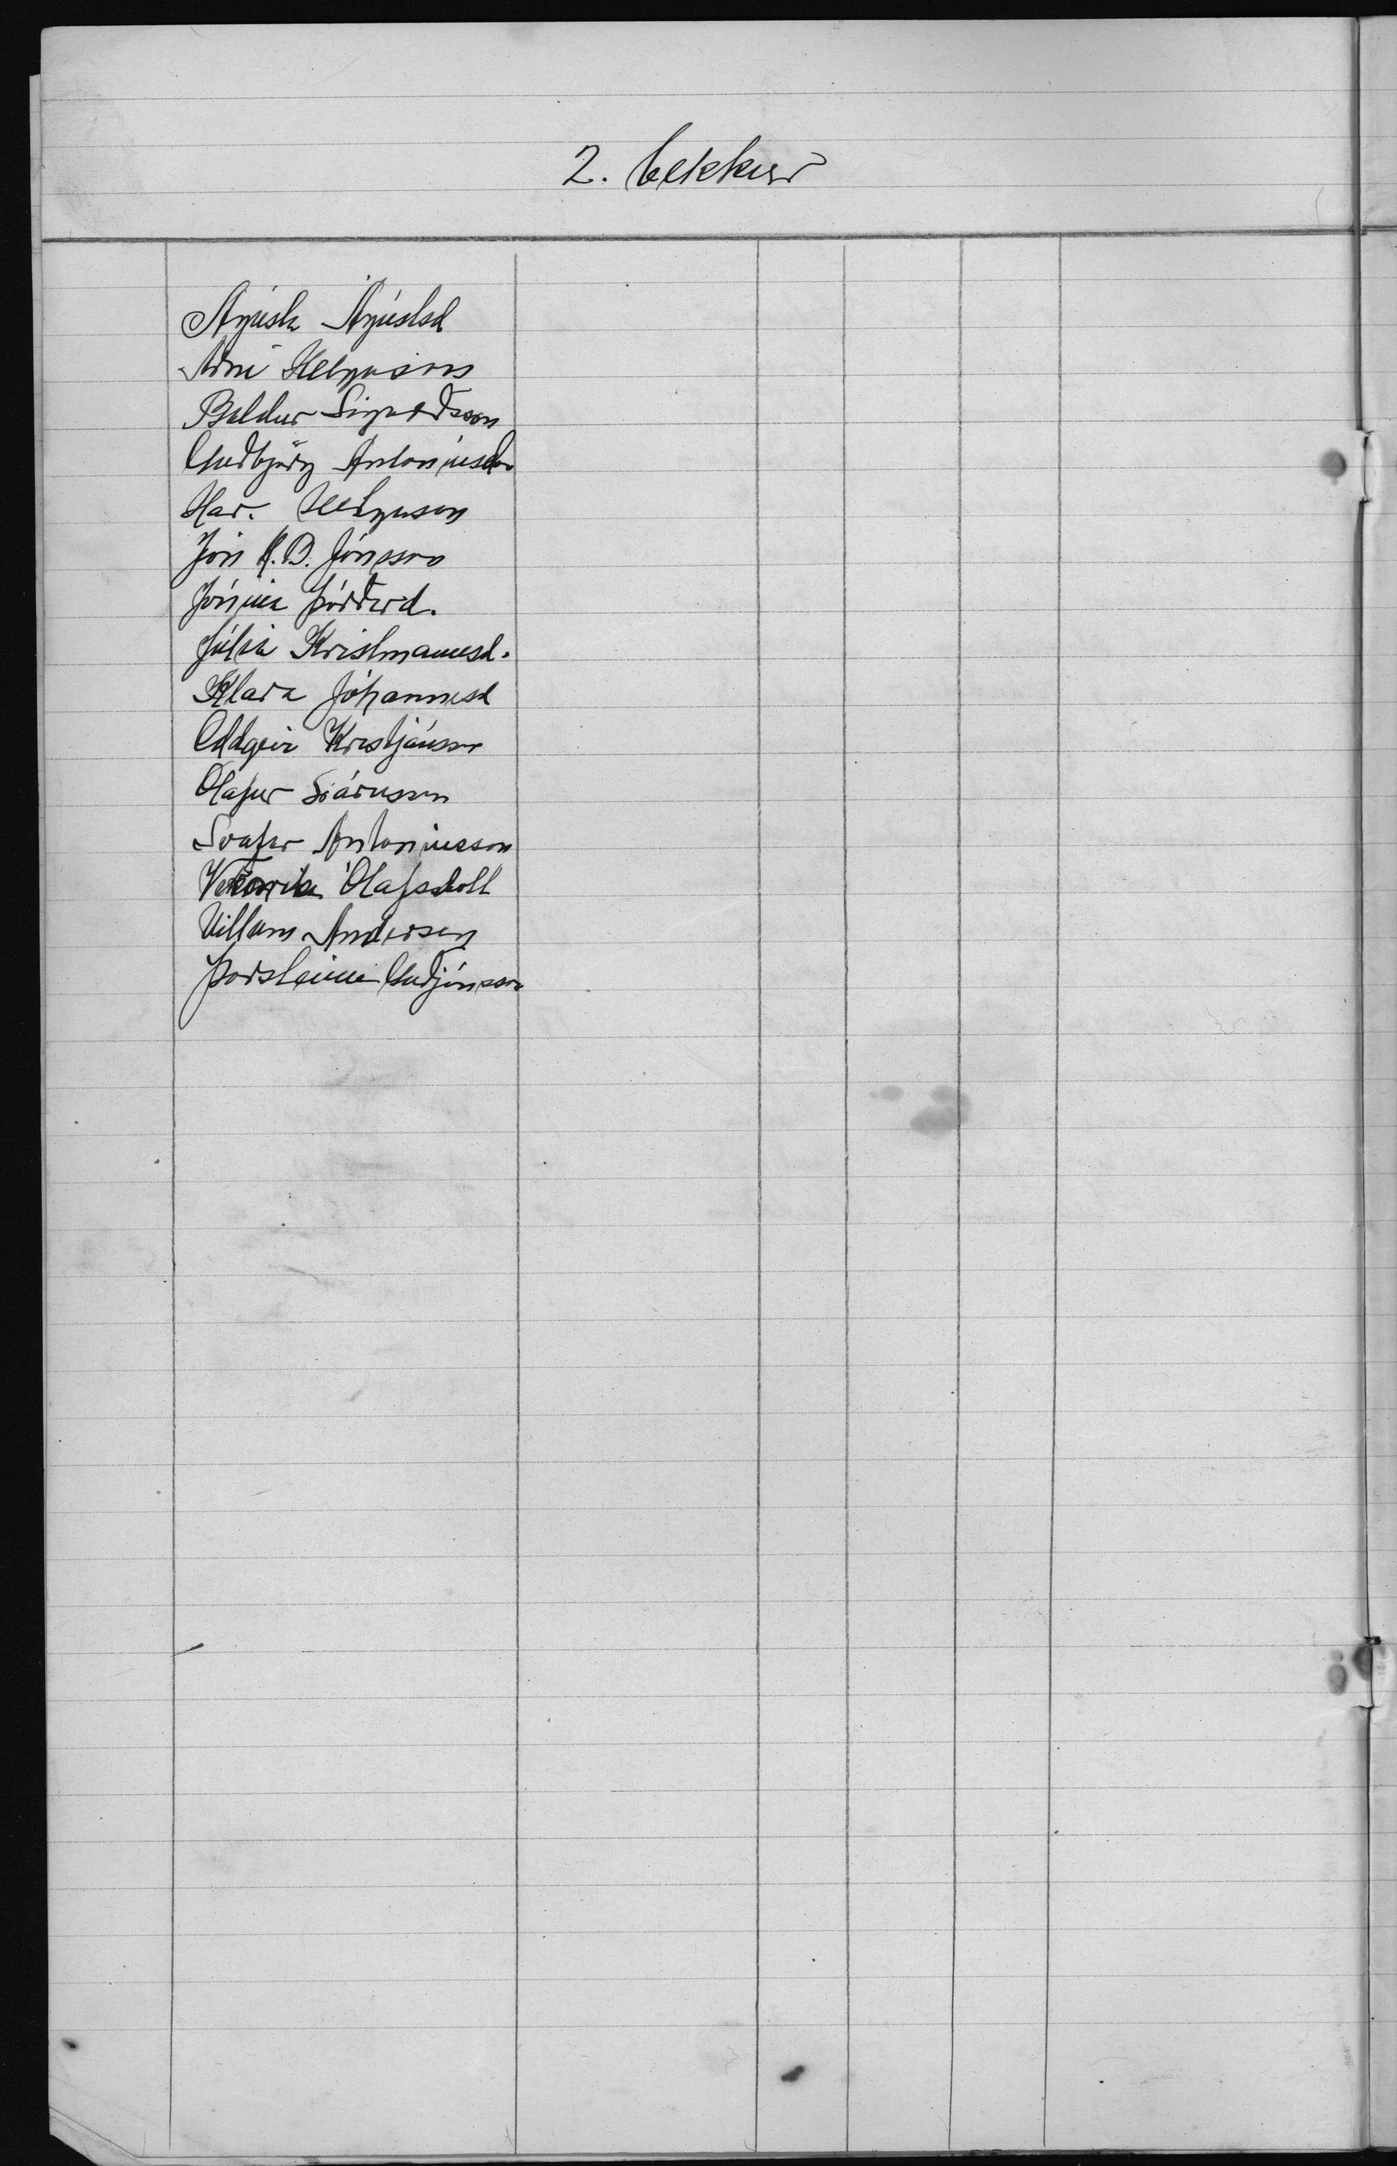 2. bekkur
Ágústa Ágústsd
Árni Helgason
Baldur Sigurðsson
Guðbjörg Antoníusd
Har. Helgason
Jón K.B. Jónsson
Jónína Þórðard.
Júlía Kristmannsd.
Klara Jóhannesd
Oddgeir Kristjánsson
Ólafur Snæ
Svafar Antoníusson
Viktoría Ólafsdott
Villum Andersen
Þorsteinn Guðjónsson